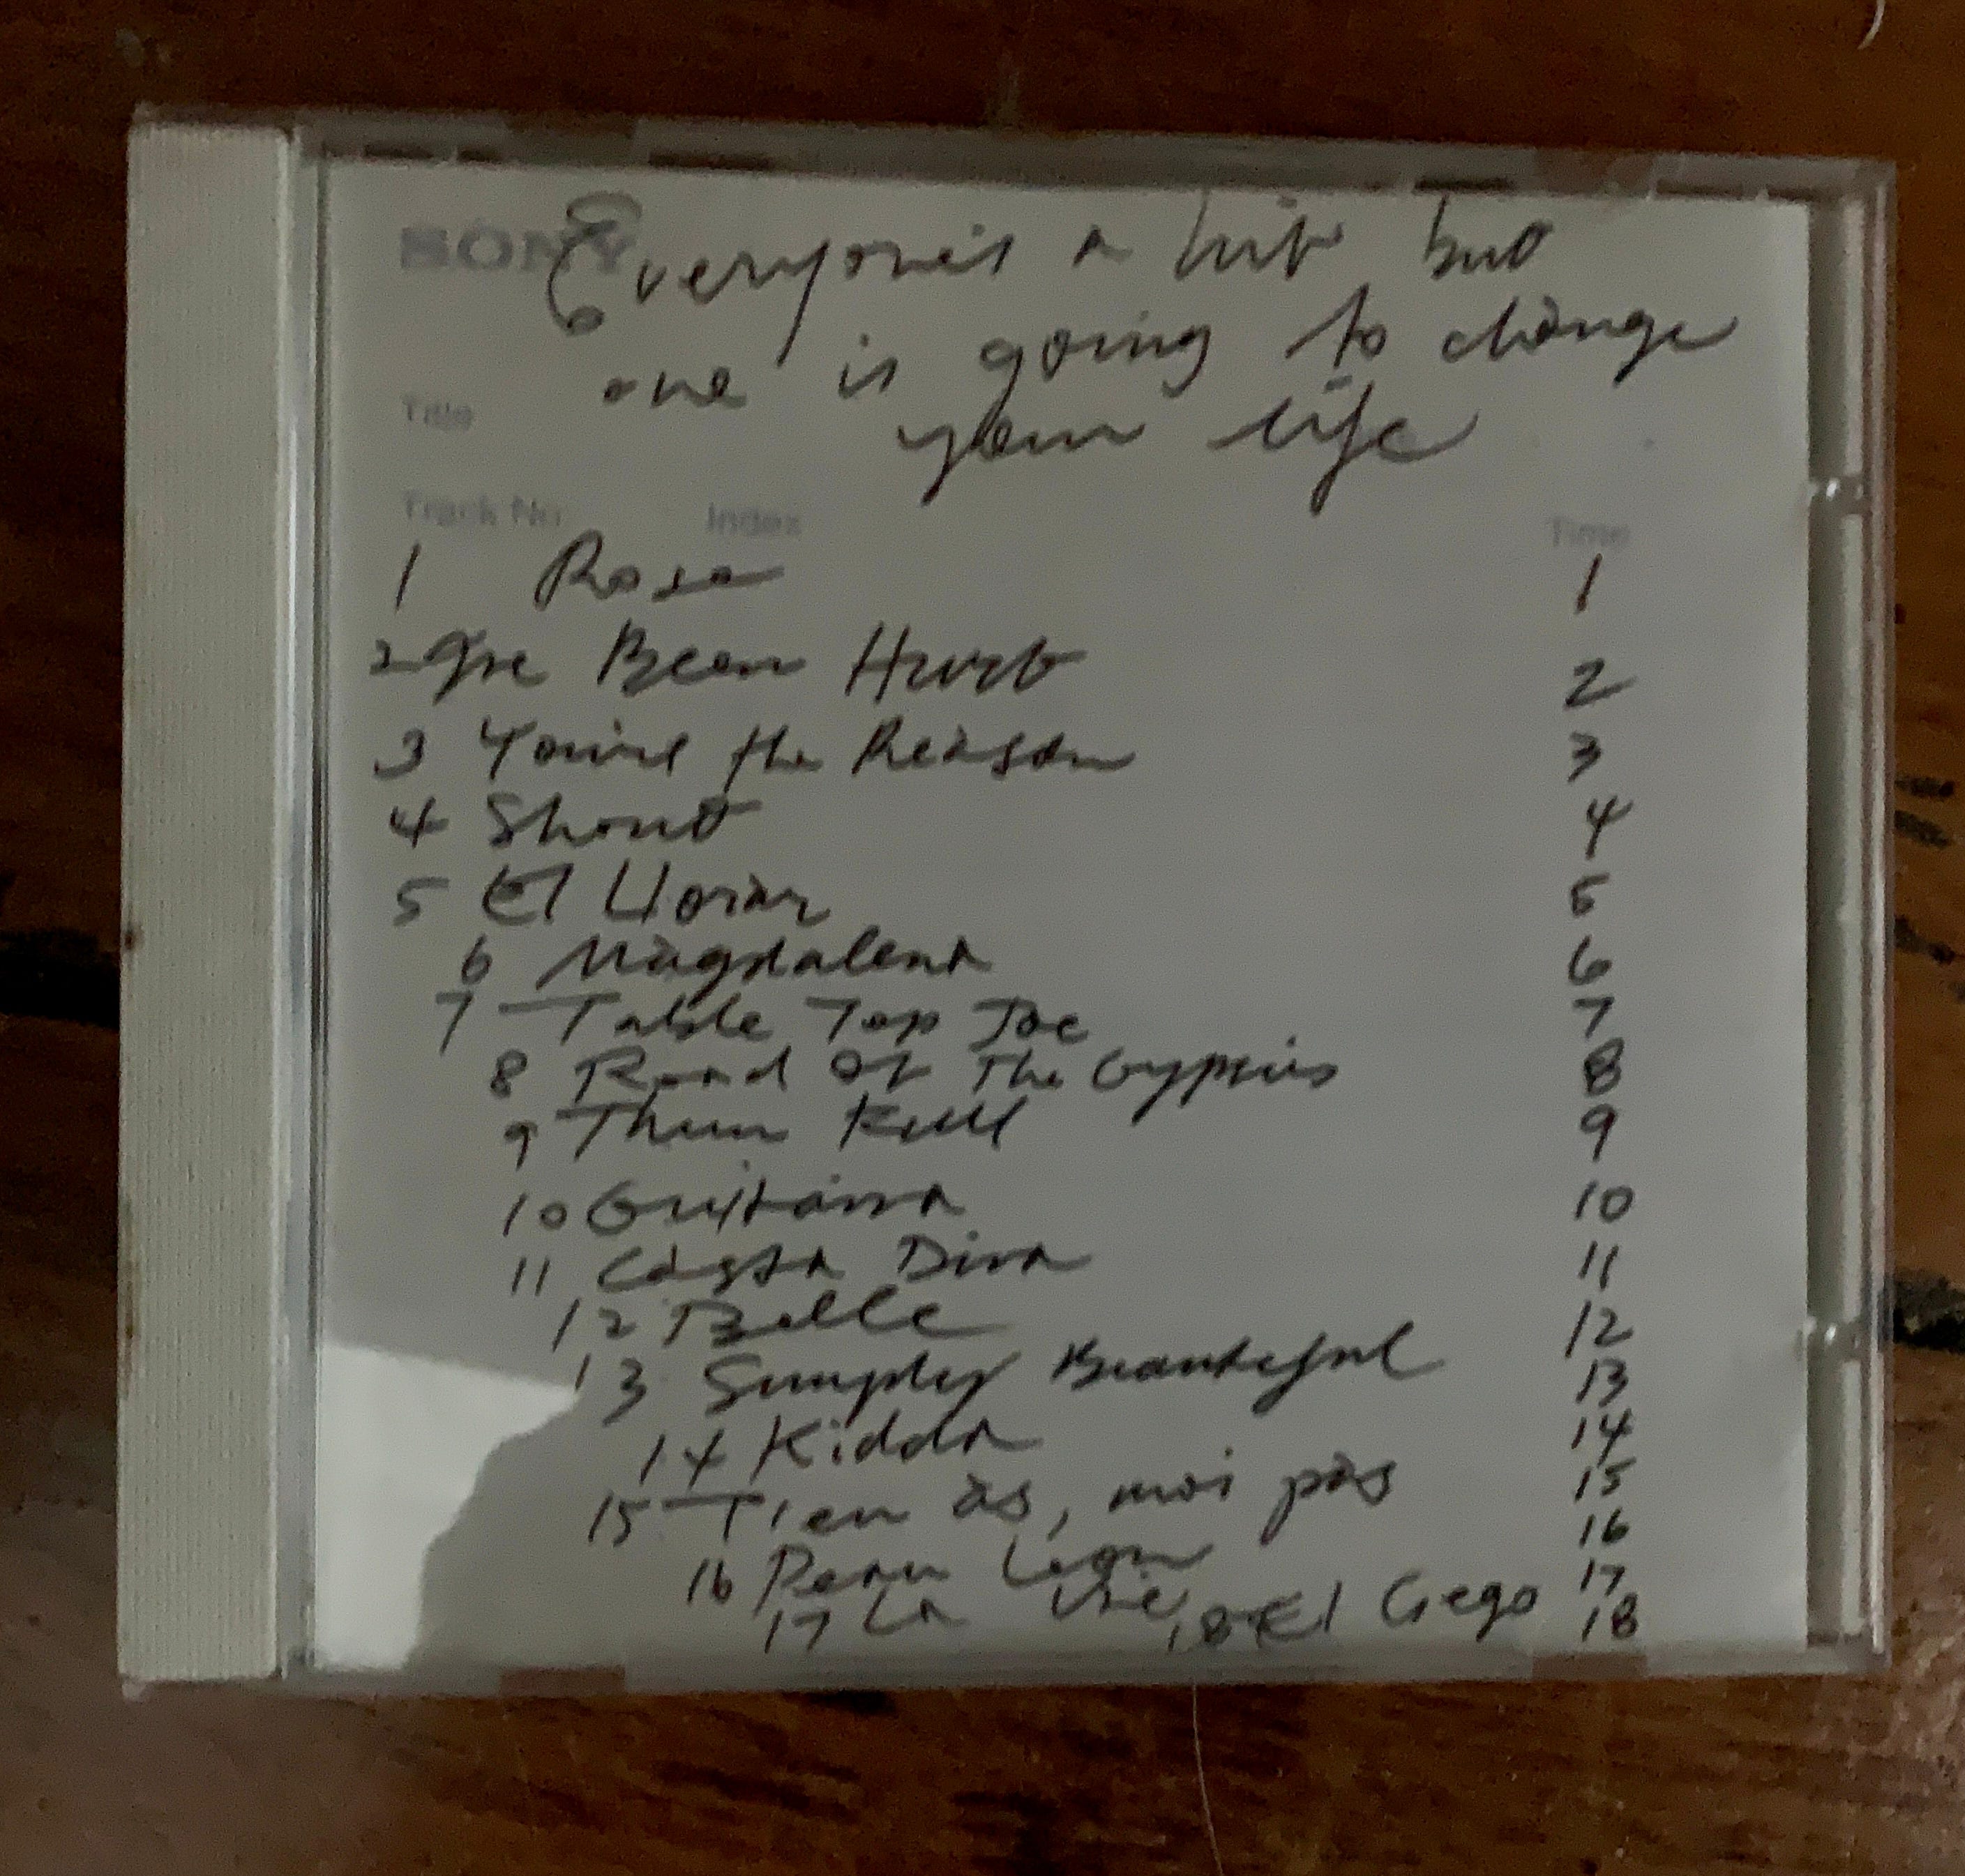 SONY
Everyone's a hit but
one is going to change
Title
your life
Track No. Index Time
1 Rosa 1
2 I've Been Hurt 2
3 You're the Reason 3
4 Shout 4
5 El Llorar 5
6 Magdalena 6
7 Table Top Joe 7
8 Road Of The Gypsies 8
9 9
10 Guitarra 10
11 Casta Diva 11
12 Belle 12
13 Simply Beautiful 13
14 Kidda 14
15 T'en as, moi pas 15
16 16
17 La Vie 17
18 El Ciego 18